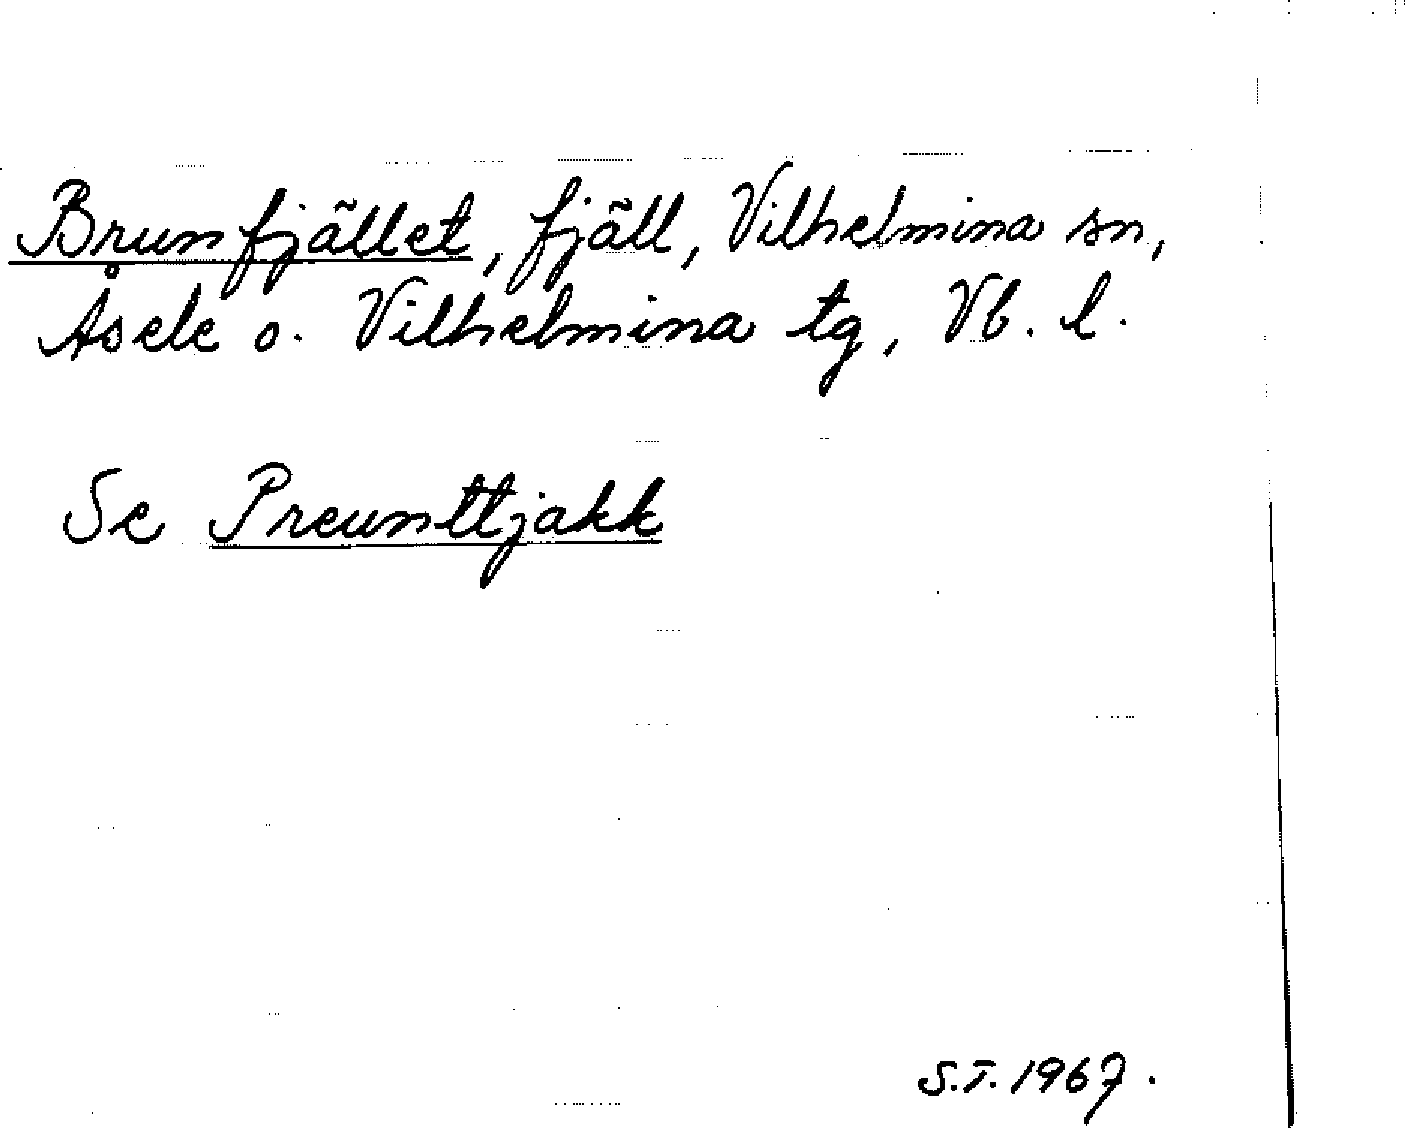 Brunfjället, fjäll, Vilhelmina sn,
Åsele o. Vilhelmina tg, Vb. l.
Se Preunttjakk
S.T. 1967.